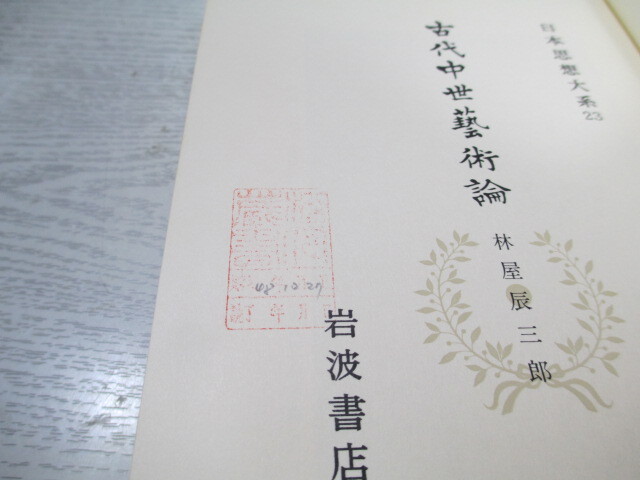 日本思想大系23
古代中世藝術論
林屋辰三郎
48 10 27
岩波書店